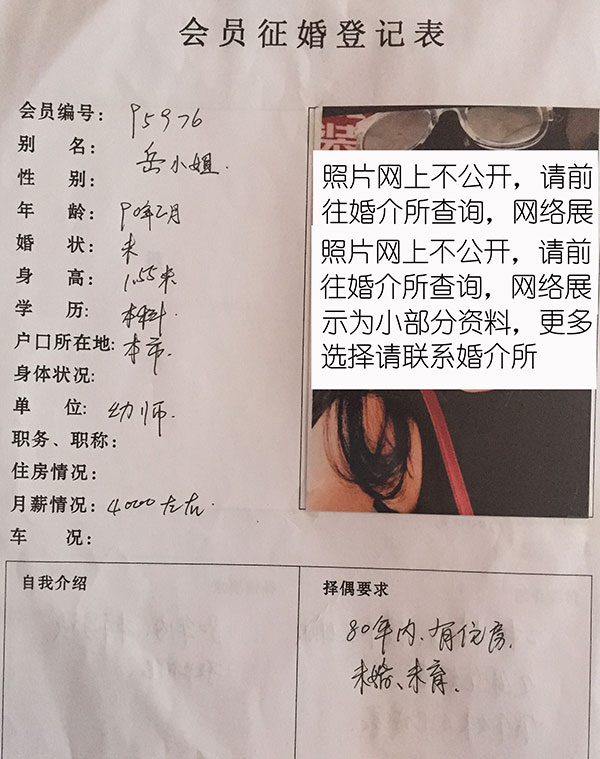 会员征婚登记表
会员编号: P5976
别 名: 岳小姐.
性 别:
年 龄: 90年2月
婚 状: 未
身 高: 1.55米
学 历: 本科
户口所在地: 本市.
身体状况:
单 位: 幼师.
职务、职称:
住房情况:
月薪情况: 4000左右.
车 况:
装
照片网上不公开，请前
往婚介所查询，网络展
照片网上不公开，请前
往婚介所查询，网络展
示为小部分资料，更多
选择请联系婚介所
自我介绍
择偶要求
80年内.有住房.
未婚、未育.